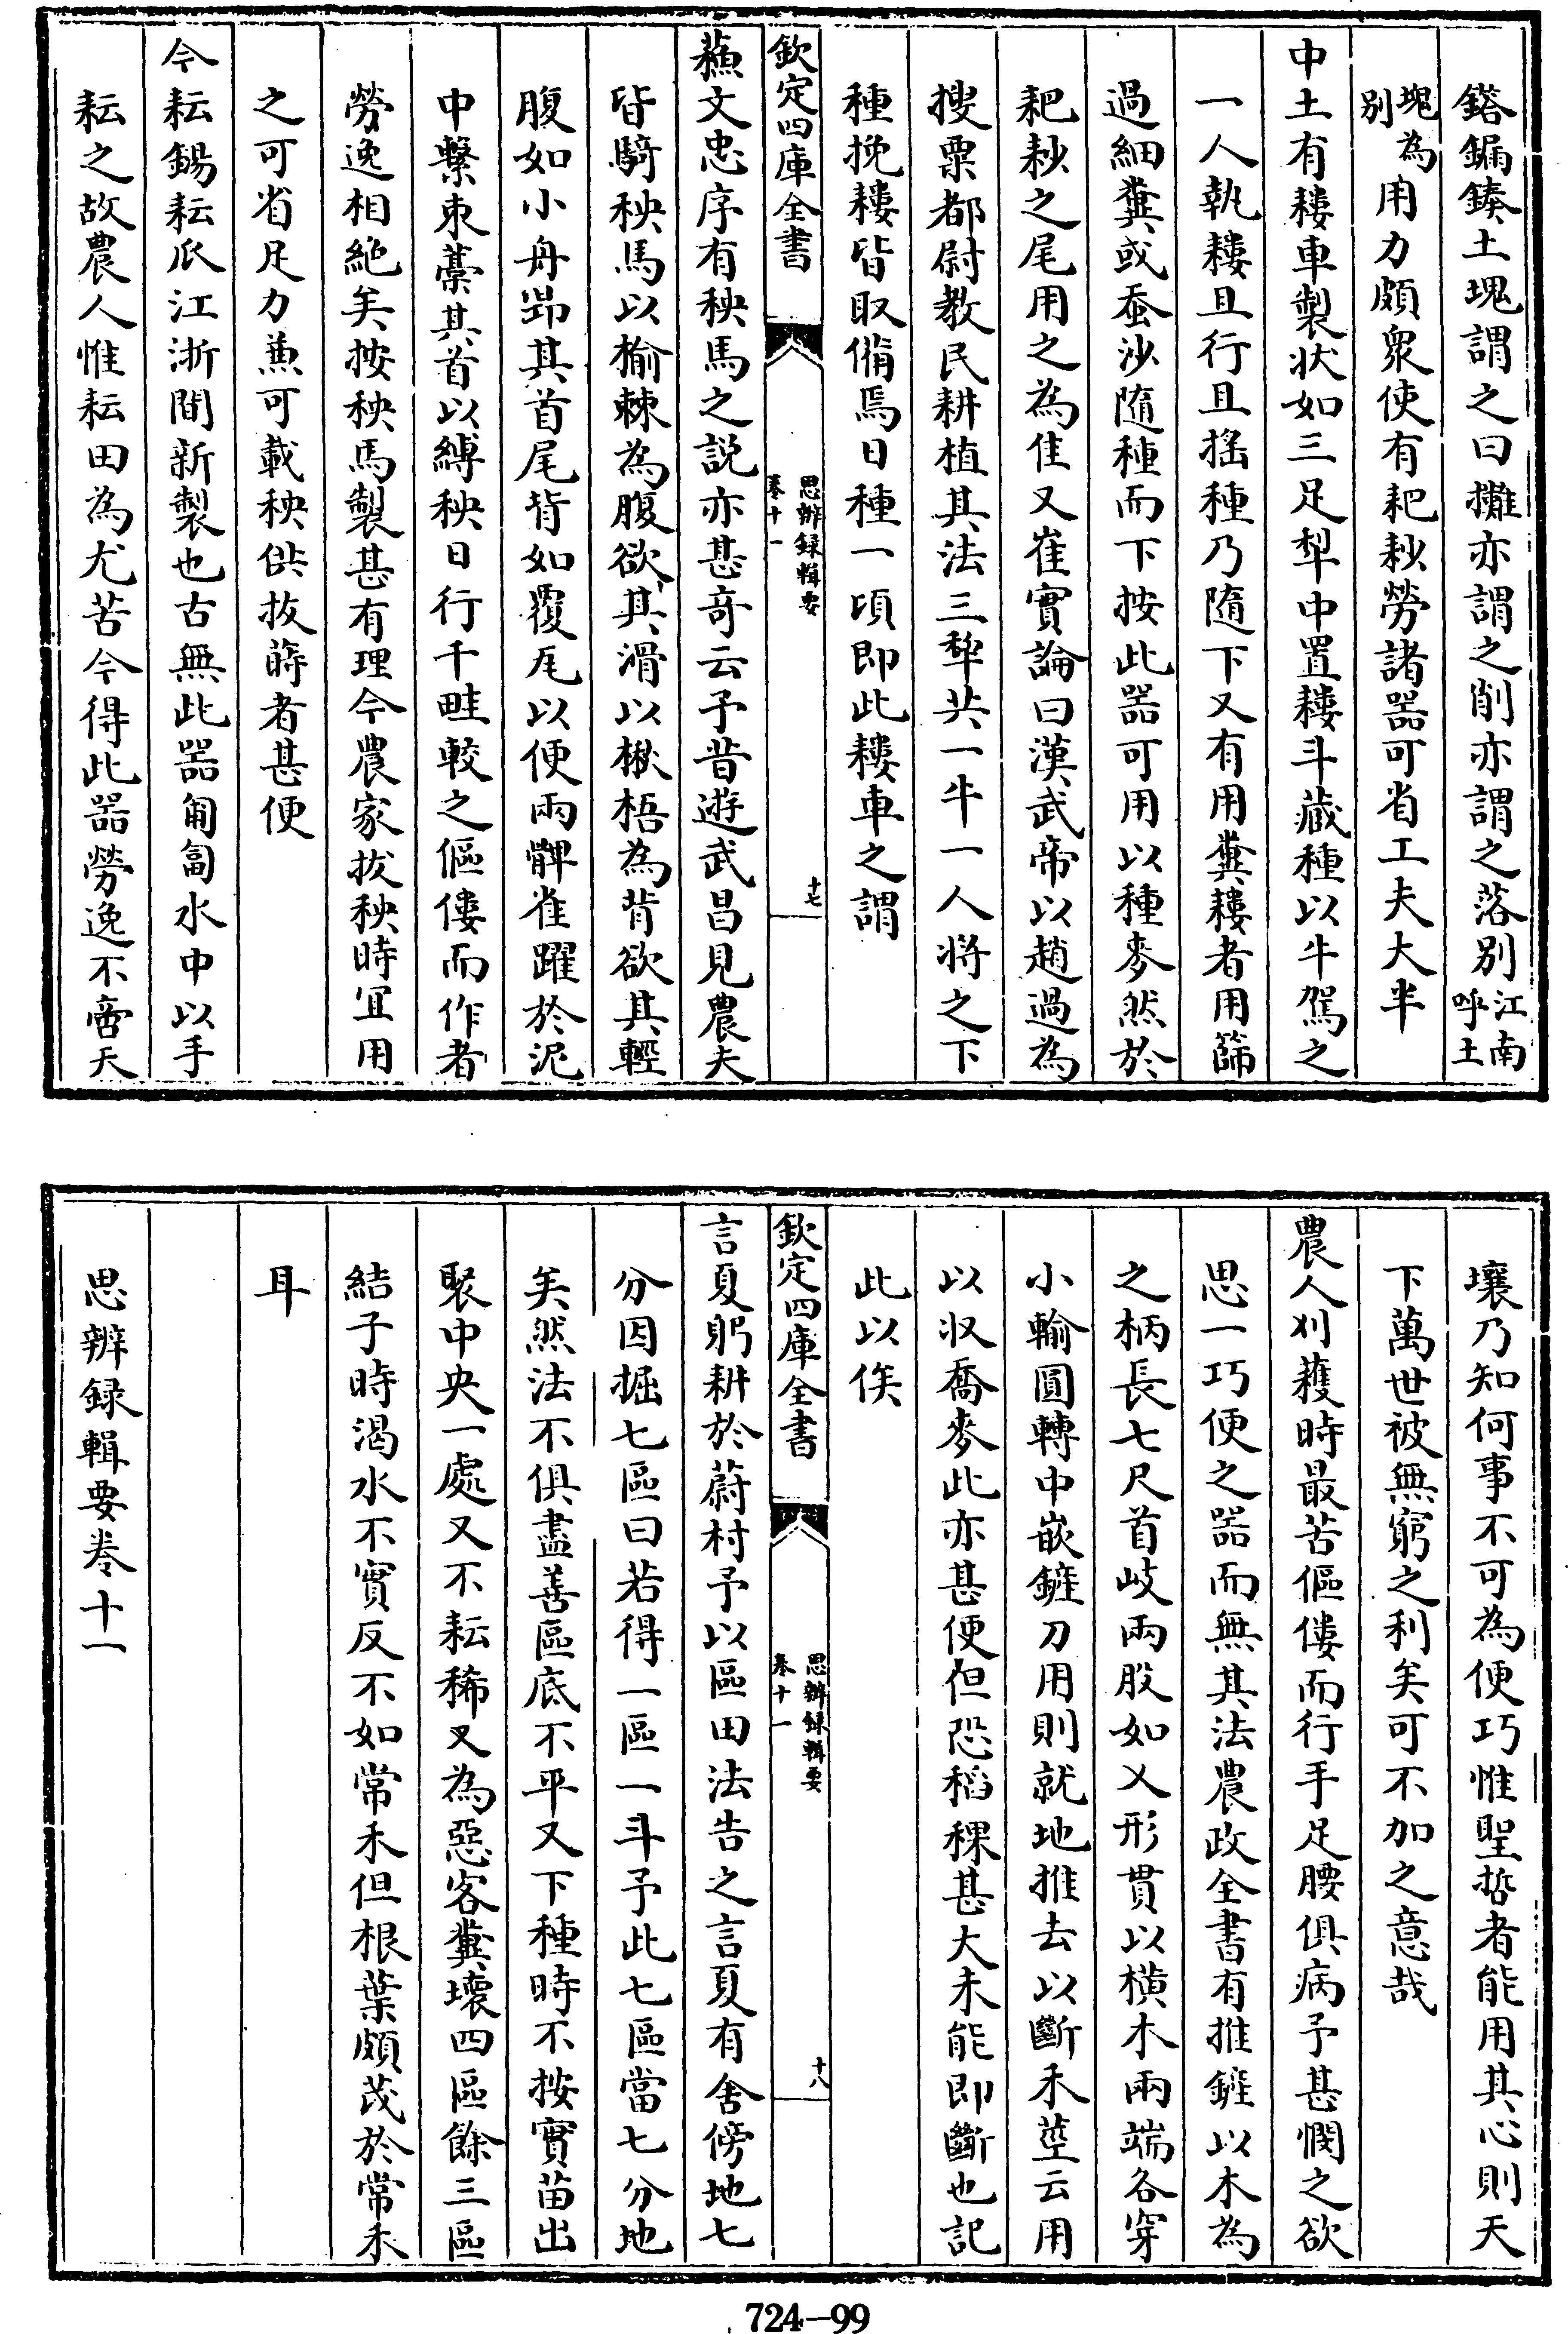 鎝鎘鏤土塊謂之曰攤亦謂之削亦謂之落别江南呼土
塊為别用力頗衆使有耙耖勞諸器可省工夫大半
中土有耬車製状如三足犂中置耬斗藏種以牛駕之
一人執耬且行且搖種乃隨下又有用糞耬者用篩
過細糞或蚕沙隨種而下按此器可用以種麥然於
耙耖之尾用之為佳又崔實論曰漢武帝以趙過為
搜粟都尉教民耕植其法三犂共一牛一人將之下
種挽耬皆取備焉日種一頃即此耬車之謂
欽定四庫全書
思辨録輯要
卷十一
十七
蘓文忠序有秧馬之説亦甚奇云予昔遊武昌見農夫
皆騎秧馬以榆棘為腹欲其滑以楸梧為背欲其輕
腹如小舟昻其首尾背如覆瓦以便兩髀雀躍於泥
中繫束藳其首以縛秧日行千畦較之傴僂而作者
勞逸相絶矣按秧馬製甚有理今農家拔秧時宜用
之可省足力兼可載秧供拔蒔者甚便
今耘錫耘爪江浙間新製也古無此器匍匐水中以手
耘之故農人惟耘田為尤苦今得此器勞逸不啻天
壤乃知何事不可為便巧惟聖哲者能用其心則天
下萬世被無窮之利矣可不加之意哉
農人刈穫時最苦傴僂而行手足腰俱病予甚憫之欲
思一巧便之器而無其法農政全書有推鎌以木為
之柄長七尺首岐兩股如乂形貫以横木兩端各穿
小輪圓轉中嵌鎌刀用則就地推去以斷禾莖云用
以收喬麥此亦甚便但恐稻稞甚大未能即斷也記
此以俟
欽定四庫全書
思辨録輯要
卷十一
十八
言夏躬耕於蔚村予以區田法告之言夏有舍傍地七
分因掘七區曰若得一區一斗予此七區當七分地
矣然法不俱盡善區底不平又下種時不按實苗出
聚中央一處又不耘稀又為惡客糞壞四區餘三區
結子時渴水不實反不如常禾但根葉頗茂於常禾
耳
思辨録輯要卷十一
724-99